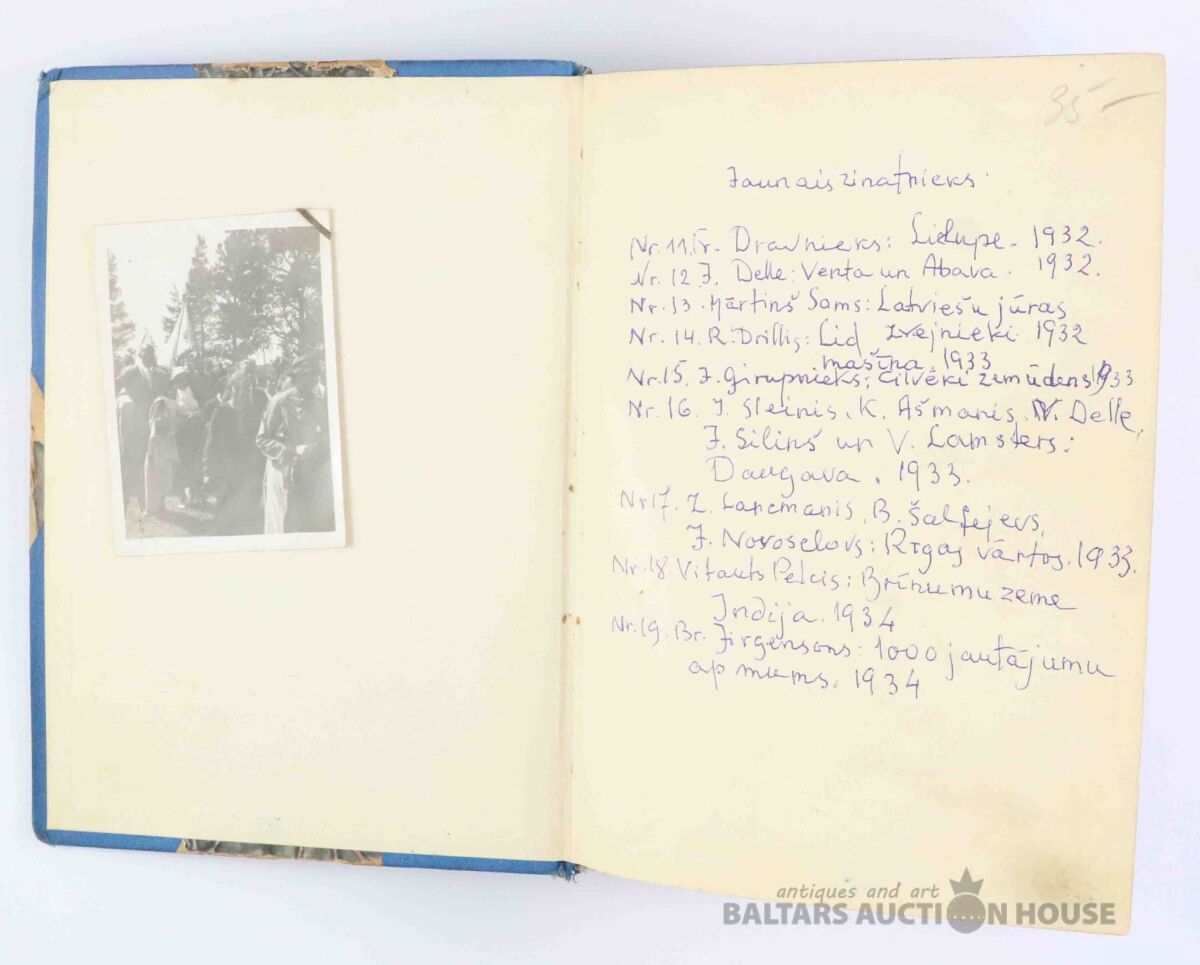 35 —
Jaunais zinatnieks:
Nr. 11. Fr. Dravnieks: Lielupe. 1932.
Nr. 12 J. Delle: Venta un Abava. 1932.
Nr. 13. Mārtiņš Sams: Latviešu jūras
zvejnieki 1932
Nr. 14. R. Drillis: Lid
mašīna 1933
Nr. 15. J. Girupnieks: Cilvēki zem ūdens 1933
Nr. 16. J. Sleinis, K. Ašmanis, N. Delle,
J. Siliņš un V. Lamsters:
Daugava. 1933.
Nr 17. Z. Lancmanis, B. Šalfejevs,
J. Novoselovs: Rīgas vārtos. 1933.
Nr. 18. Vitauts Pelcis: Brīnumu zeme
Indija. 1934
Nr. 19. Br. Jirgensons: 1000 jautājumu
ap mums. 1934
antiques and art
BALTARS AUCTION HOUSE